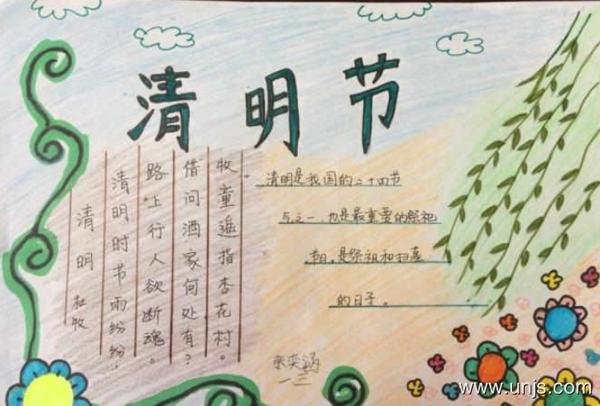 清明节
清明 杜牧
清明时节雨纷纷,
路上行人欲断魂。
借问酒家何处有?
牧童遥指杏花村。
清明是我国的二十四节
气之一,也是最重要的祭祀
节日,是祭祖和扫墓
的日子。
奕涵
一三
www.unjs.com